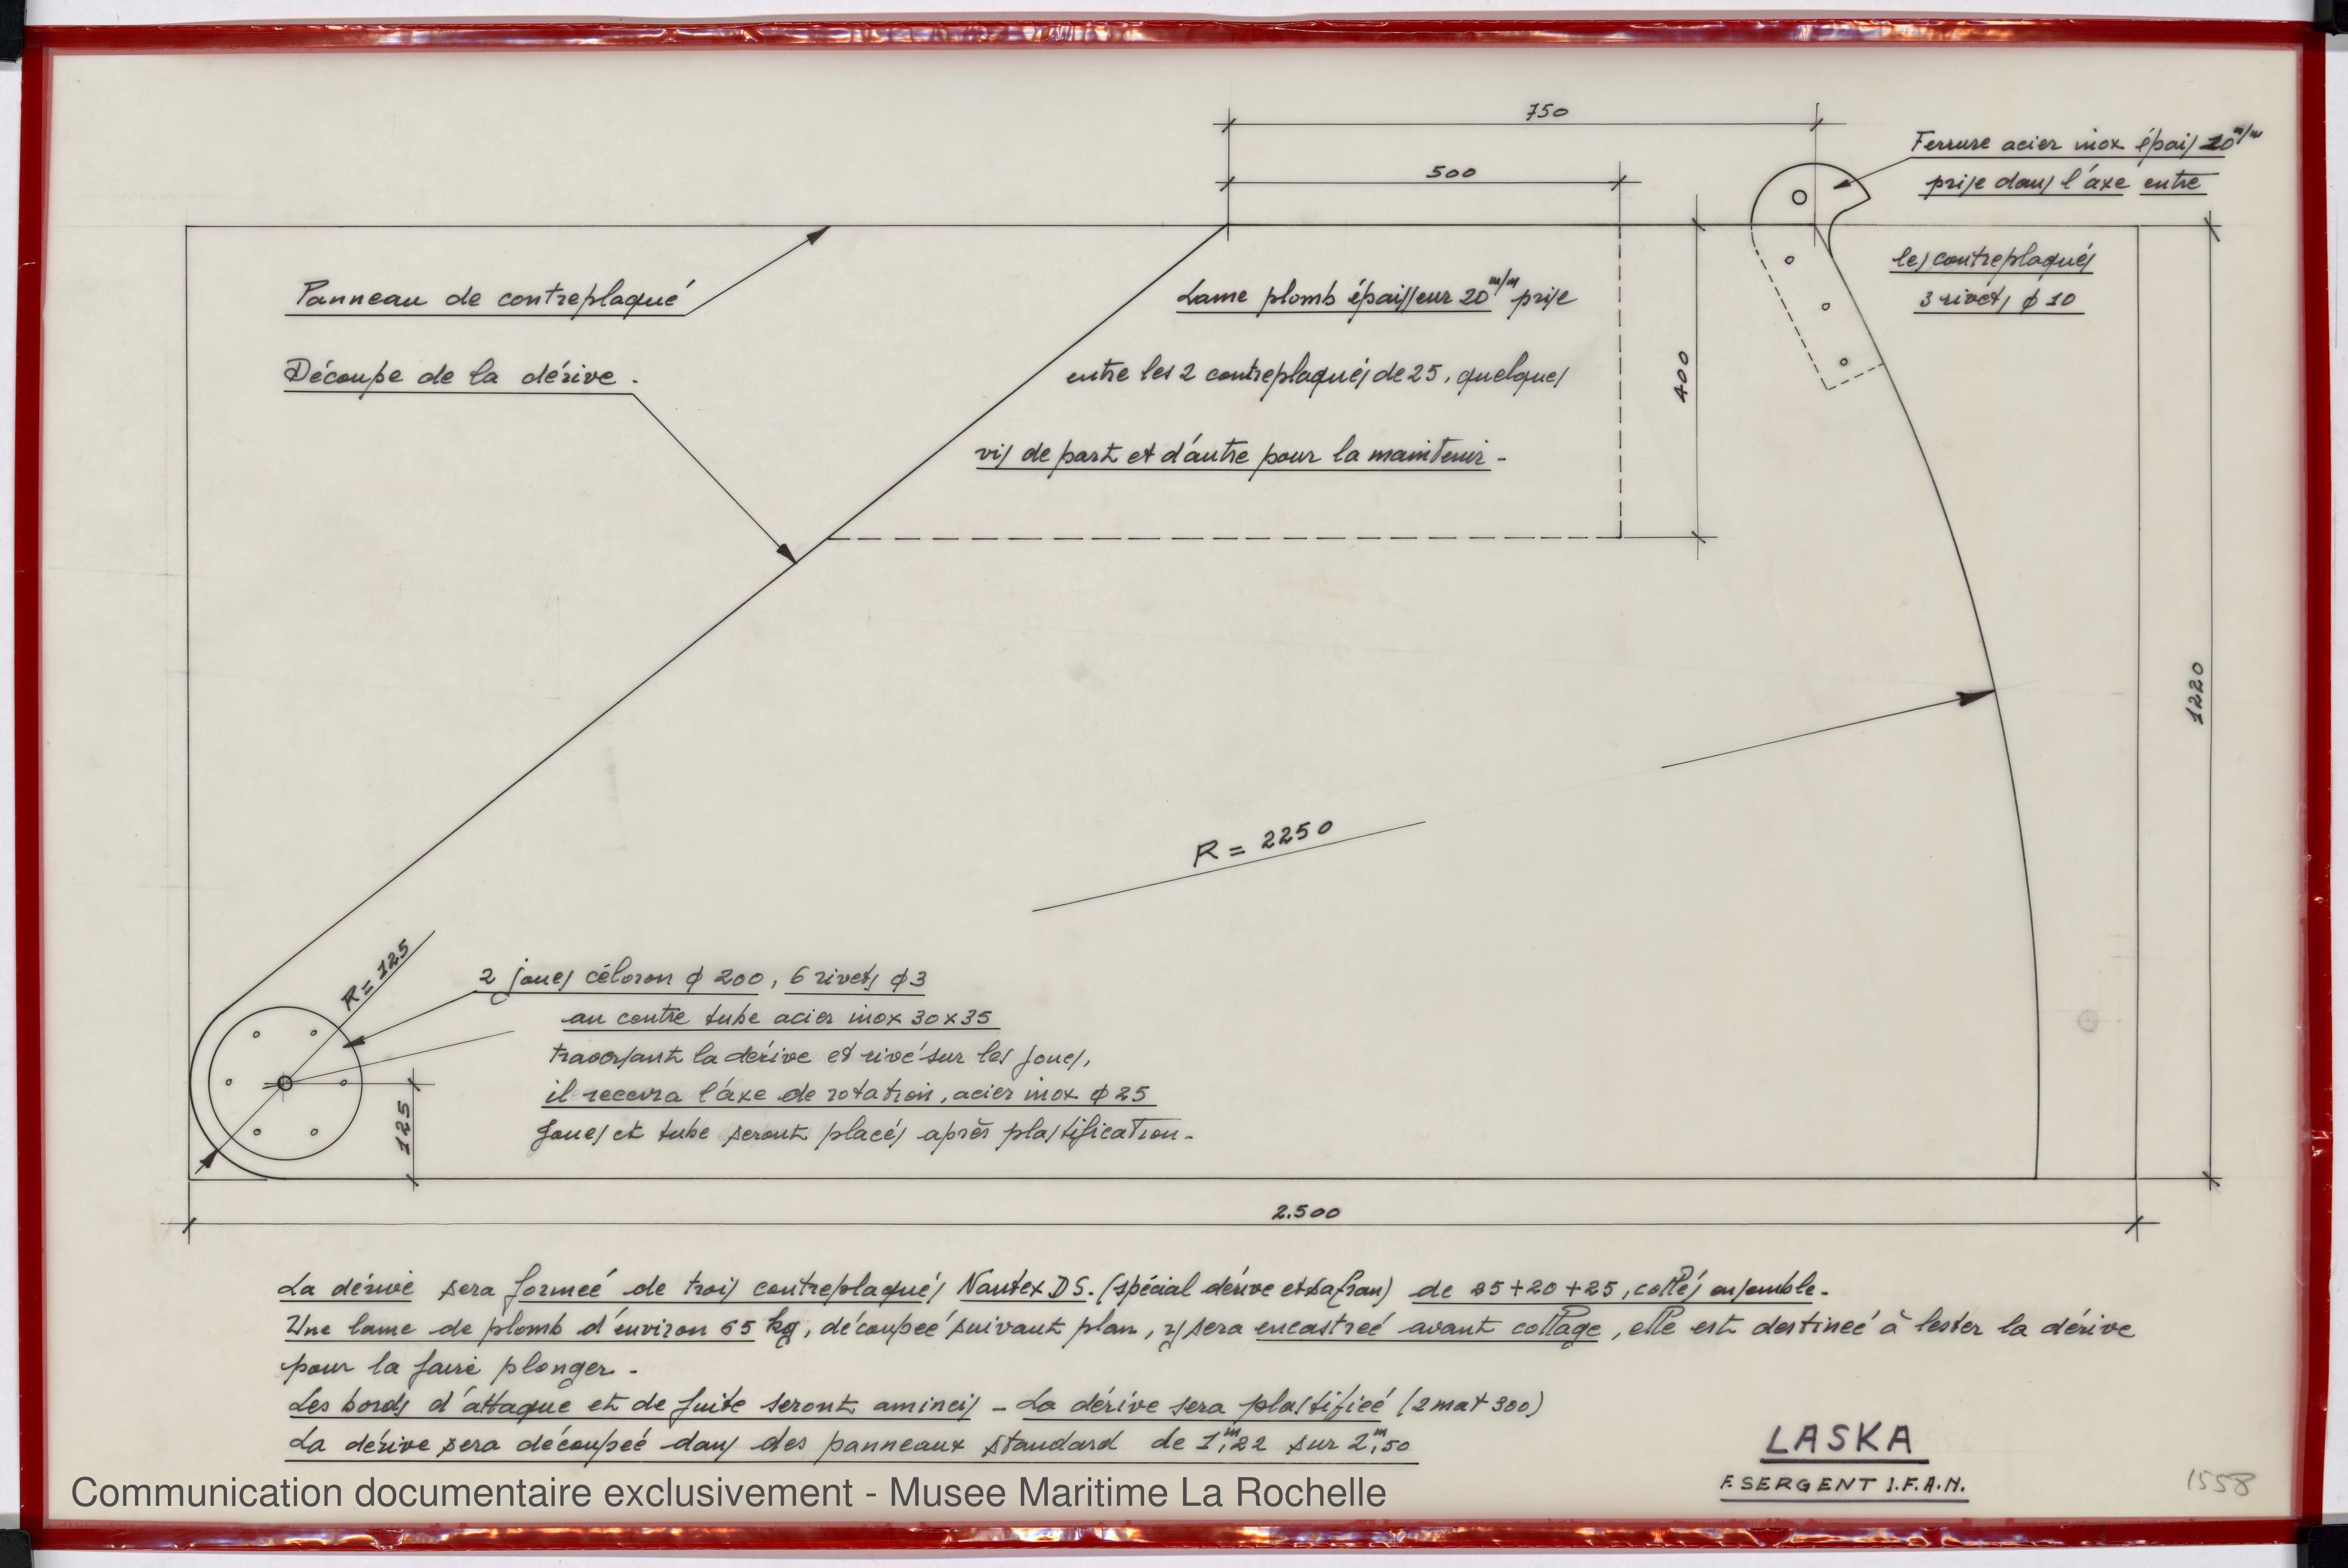 750
500
Ferrure acier inox épais 10 m/m
prise dans l'axe entre
les contreplaqués
3 rivets ϕ 10
Panneau de contreplaqué
Découpe de la dérive.
Lame plomb épaisseur 20 m/m prise
entre les 2 contreplaqués de 25, quelques
vis de part et d'autre pour la maintenir -
400
1220
R = 2250
R = 125
2 joues céloron ϕ 200, 6 rivets ϕ 3
au centre tube acier inox 30 x 35
traversant la dérive et rivé sur les joues,
il recevra l'axe de rotation, acier inox ϕ 25
Joues et tube seront placés après plastification -
125
2.500
La dérive sera formeé de trois contreplaqués Nautex DS. (spécial dérive et safran) de 25+20+25, collés ensemble -
Une lame de plomb d'environ 65 kg, découpeé suivant plan, y sera encastreé avant collage, elle est destineé à lester la dérive
pour la faire plonger -
Les bords d'attaque et de fuite seront amincis - La dérive sera plastifieé (2 mat 300)
La dérive sera découpeé dans des panneaux standard de 1m,22 sur 2m,50
LASKA
F. SERGENT I.F.A.N.
1558
Communication documentaire exclusivement - Musee Maritime La Rochelle